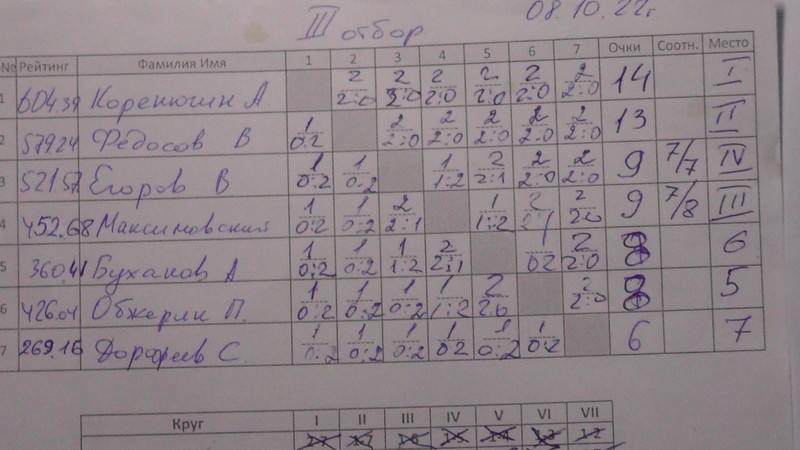 III отбор 08.10.22г.
№ Рейтинг Фамилия Имя 1 2 3 4 5 6 7 Очки Соотн. Место
1 604.39 Коренюгин А. 2 2:0 2 2:0 2 2:0 2 2:0 2 2:0 2 2:0 14 I
2 579.24 Федосов В 1 0:2 2 2:0 2 2:0 2 2:0 2 2:0 2 2:0 13 II
3 521.57 Егоров В 1 0:2 1 0:2 1 1:2 2 2:1 2 2:0 2 2:0 9 7/7 IV
4 452.68 Максимовский 1 0:2 1 0:2 2 2:1 1 1:2 2 2:1 2 2:0 9 7/8 III
5 360.41 Буханов А 1 0:2 1 0:2 1 1:2 2 2:1 1 0:2 2 2:0 8 6
6 426.04 Обжерин П. 1 0:2 1 0:2 1 0:2 1 1:2 2 2:0 2 2:0 8 5
7 269.16 Дорофеев С. 1 0:2 1 0:2 1 0:2 1 0:2 1 0:2 1 0:2 6 7
Круг I II III IV V VI VII